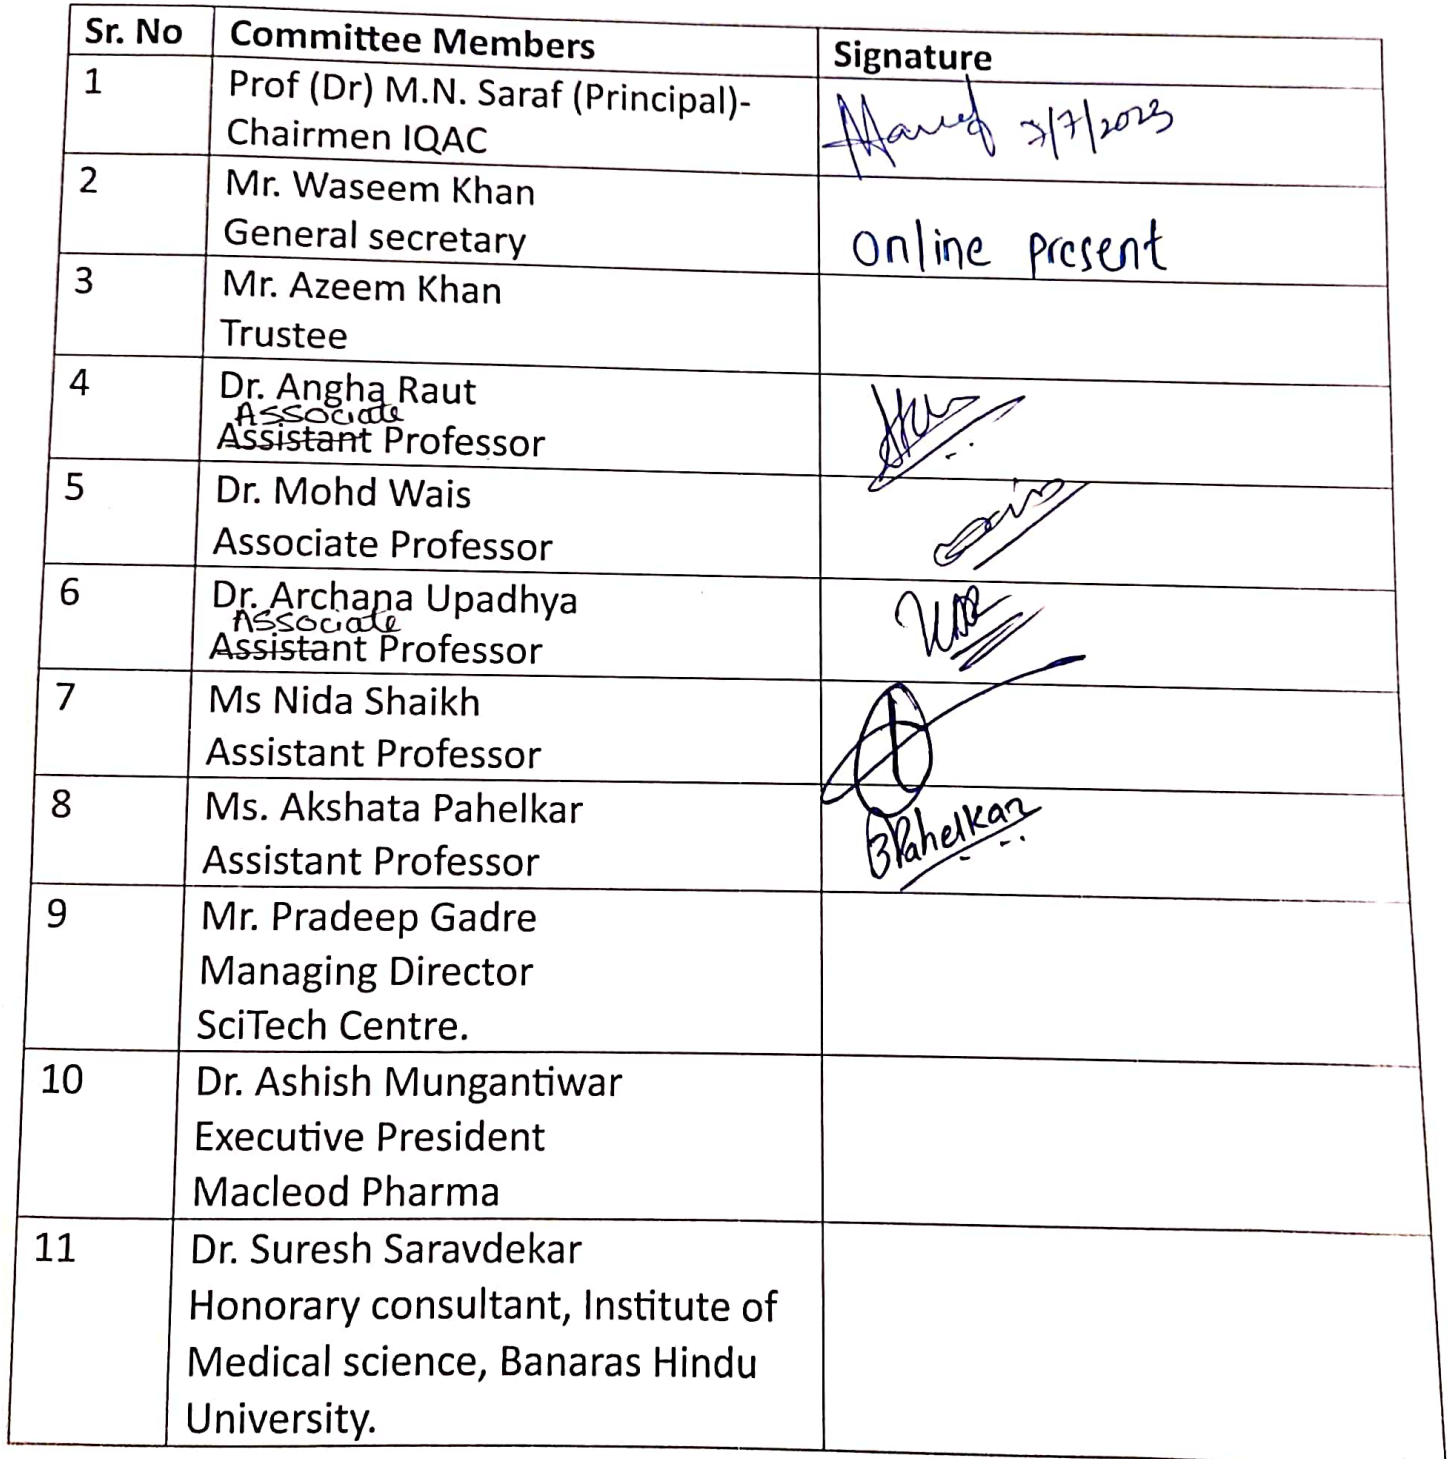 Sr. No Committee Members Signature
1 Prof (Dr) M.N. Saraf (Principal)-
Chairmen IQAC
7/7/2023
2 Mr. Waseem Khan
General secretary
Online present
3 Mr. Azeem Khan
Trustee
4 Dr. Angha Raut
Associate
Assistant Professor
5 Dr. Mohd Wais
Associate Professor
6 Dr. Archana Upadhya
Associate
Assistant Professor
7 Ms Nida Shaikh
Assistant Professor
8 Ms. Akshata Pahelkar
Pahelkar
Assistant Professor
9 Mr. Pradeep Gadre
Managing Director
SciTech Centre.
10 Dr. Ashish Mungantiwar
Executive President
Macleod Pharma
11 Dr. Suresh Saravdekar
Honorary consultant, Institute of
Medical science, Banaras Hindu
University.